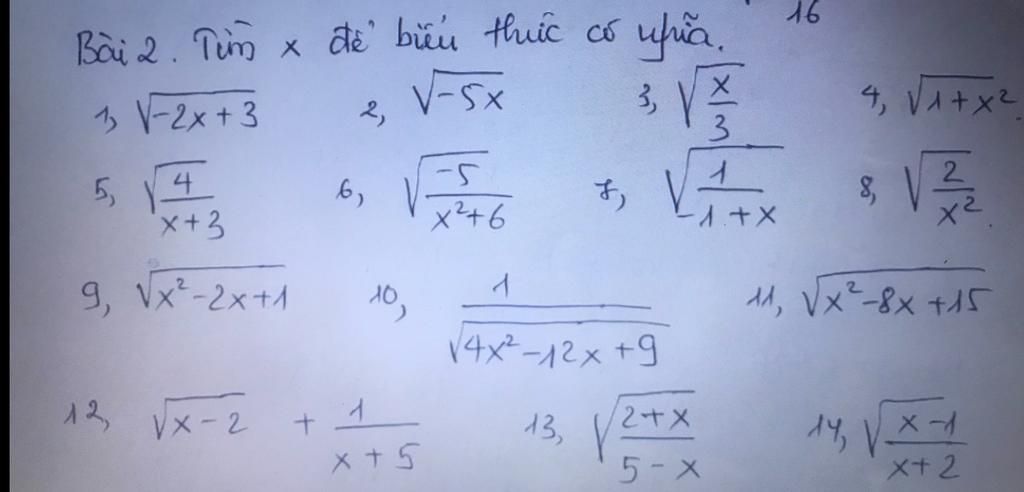 16
Bài 2. Tìm x để biểu thức có nghĩa.
1, √(-2x+3) 2, √(-5x) 3, √(x/3) 4, √(1+x²).
5, √(4/(x+3)) 6, √(-5/(x²+6)) 7, √(1/(-1+x)) 8, √(2/x²).
9, √(x²-2x+1) 10, 1/√(4x²-12x+9) 11, √(x²-8x+15)
12, √(x-2) + 1/(x+5) 13, √((2+x)/(5-x)) 14, √((x-1)/(x+2))